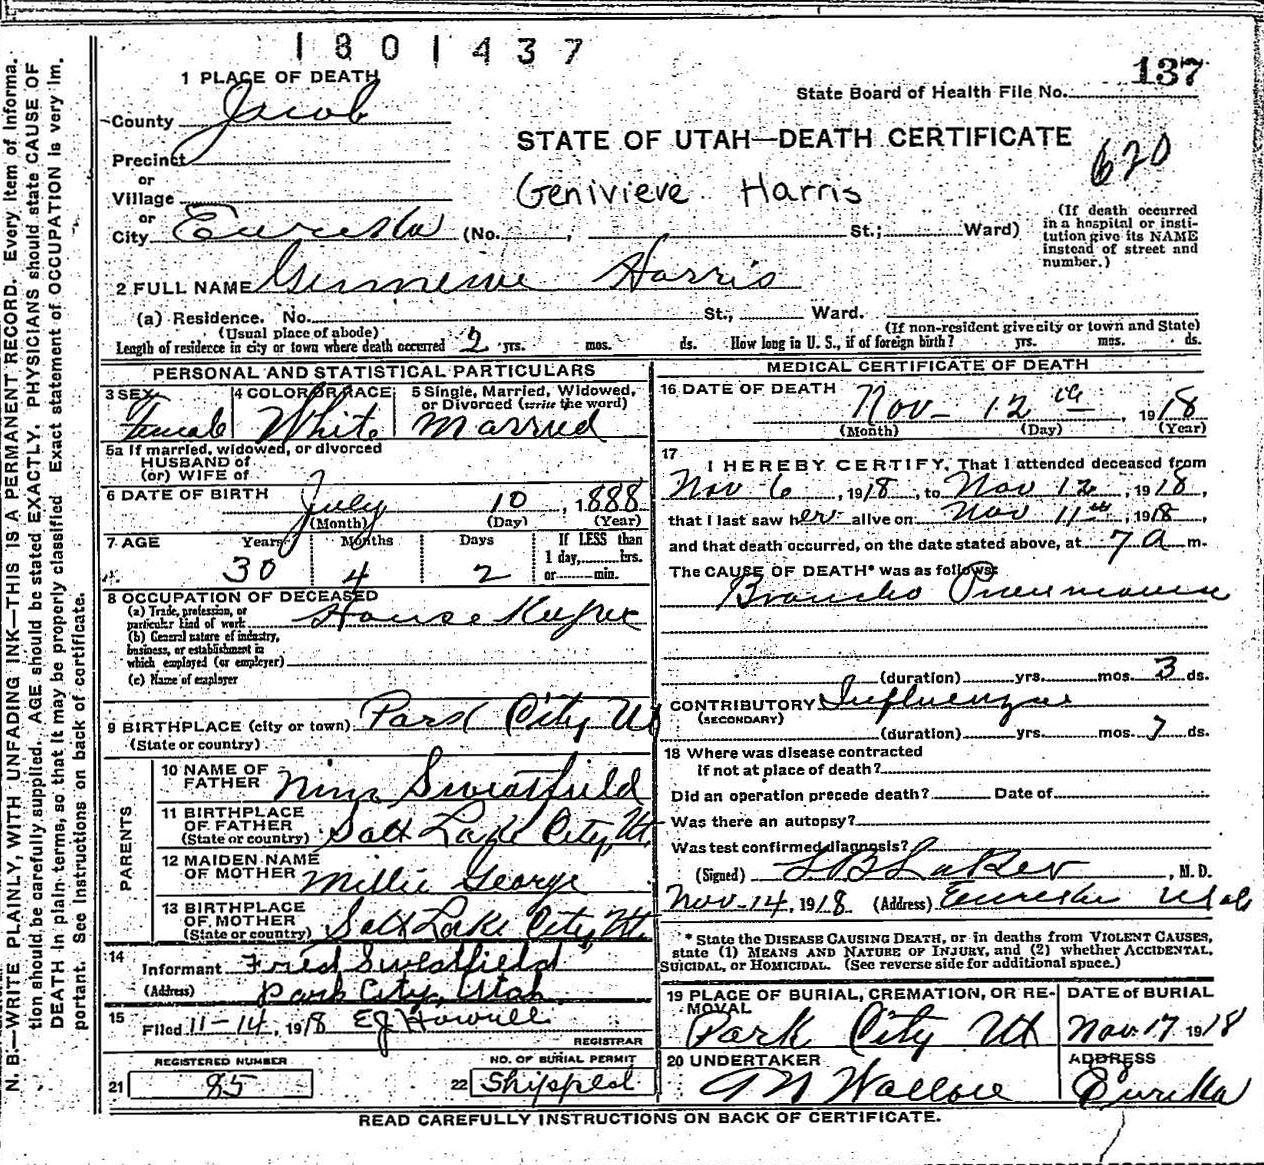 1801437
137
State Board of Health File No.
1 PLACE OF DEATH
County
STATE OF UTAH—DEATH CERTIFICATE
620
Precinct
or
Village
Genivieve Harris
or
City Eureka (No. , St.; Ward)
(If death occurred
in a hospital or insti-
tution give its NAME
instead of street and
number.)
2 FULL NAME Harris
(a) Residence. No. St., Ward.
(Usual place of abode) (If non-resident give city or town and State)
Length of residence in city or town where death occurred 2 yrs. mos. ds. How long in U. S., if of foreign birth? yrs. mos. ds.
PERSONAL AND STATISTICAL PARTICULARS
3 SEX 4 COLOR OR RACE 5 Single, Married, Widowed,
or Divorced (write the word)
Female White Married
5a If married, widowed, or divorced
HUSBAND of
(or) WIFE of
6 DATE OF BIRTH July 10, 1888
(Month) (Day) (Year)
7 AGE Years Months Days If LESS than
1 day, hrs.
or min.
30 4 2
8 OCCUPATION OF DECEASED
(a) Trade, profession, or
particular kind of work House Keeper
(b) General nature of industry,
business, or establishment in
which employed (or employer)
(c) Name of employer
9 BIRTHPLACE (city or town) Park City Ut
(State or country)
PARENTS
10 NAME OF
FATHER Sweatfield
11 BIRTHPLACE
OF FATHER
(State or country) Salt Lake City, Ut.
12 MAIDEN NAME
OF MOTHER Millie George
13 BIRTHPLACE
OF MOTHER
(State or country) Salt Lake City, Ut.
14
Informant Fred Sweatfield
(Address) Park City, Utah.
15
Filed 11-14, 1918 EJ Howell
REGISTRAR
REGISTERED NUMBER NO. OF BURIAL PERMIT
21 85 22 Shipped
MEDICAL CERTIFICATE OF DEATH
16 DATE OF DEATH Nov- 12th, 1918
(Month) (Day) (Year)
17
I HEREBY CERTIFY, That I attended deceased from
Nov 6, 1918, to Nov 12, 1918,
that I last saw her alive on Nov 11th, 1918,
and that death occurred, on the date stated above, at 7 a m.
The CAUSE OF DEATH* was as follows:
Broncho Pneumonia
(duration) yrs. mos. 3 ds.
CONTRIBUTORY Influenza
(SECONDARY)
(duration) yrs. mos. 7 ds.
18 Where was disease contracted
if not at place of death?
Did an operation precede death? Date of
Was there an autopsy?
Was test confirmed diagnosis?
(Signed) , M. D.
Nov-14, 1918 (Address) Eureka Utah
* State the DISEASE CAUSING DEATH, or in deaths from VIOLENT CAUSES,
state (1) MEANS AND NATURE OF INJURY, and (2) whether ACCIDENTAL,
SUICIDAL, or HOMICIDAL. (See reverse side for additional space.)
19 PLACE OF BURIAL, CREMATION, OR RE-
MOVAL DATE of BURIAL
Park City Ut Nov. 17 1918
20 UNDERTAKER ADDRESS
Wallace Eureka
READ CAREFULLY INSTRUCTIONS ON BACK OF CERTIFICATE.
N. B.—WRITE PLAINLY, WITH UNFADING INK—THIS IS A PERMANENT RECORD. Every item of informa-
tion should be carefully supplied. AGE should be stated EXACTLY. PHYSICIANS should state CAUSE OF
DEATH in plain terms, so that it may be properly classified. Exact statement of OCCUPATION is very im-
portant. See instructions on back of certificate.